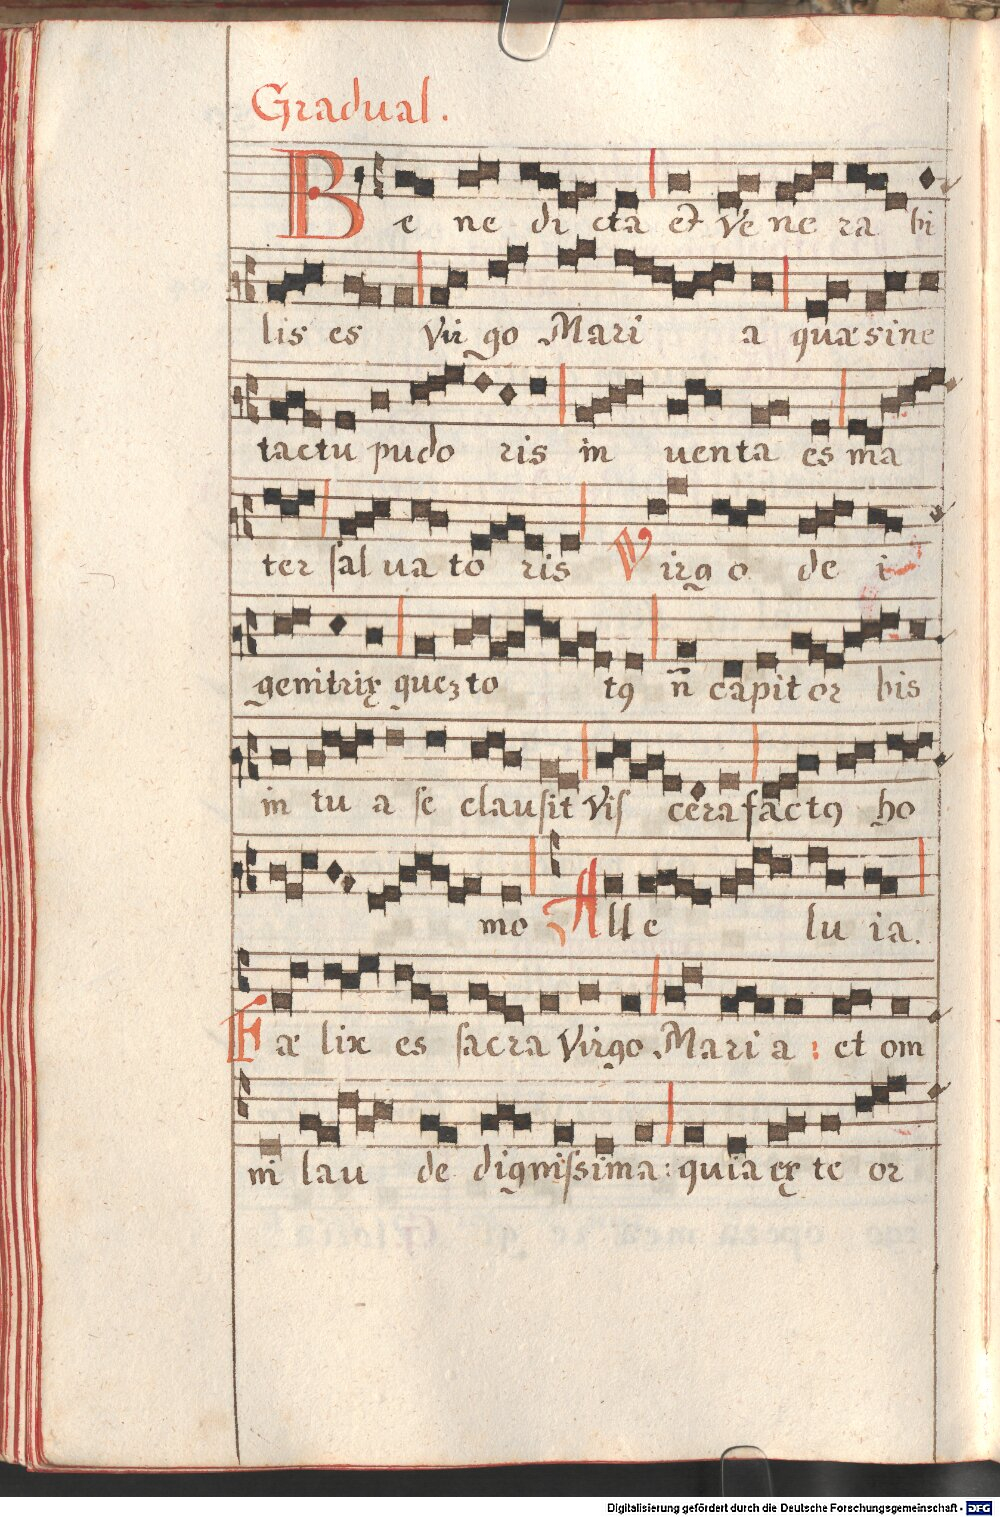 Gradual.
Be ne di cta et Ve ne ra bi
lis es Vir go Mari a quæ sine
tactu pudo ris in uenta es ma
ter sal ua to ris Virgo de i
genitrix queꝫ to tꝰ n̄ capit or bis
in tu a se clausit Vis cera factꝰ ho
mo Alle lu ia.
Fæ lix es sacra Virgo Mari a : et om
ni lau de dignissima : quia ex te or
Digitalisierung gefördert durch die Deutsche Forschungsgemeinschaft - DFG